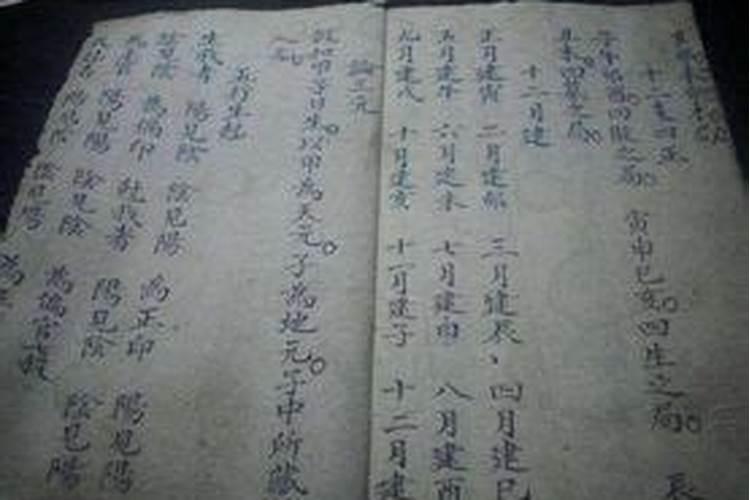 十二支四正
子午卯酉。四敗之局。 寅申巳亥。四生之局。 辰
丑未。四墓之局。
十二月建
正月建寅 二月建卯 三月建辰、 四月建巳
五月建午 六月建未 七月建申 八月建酉
九月建戌 十月建亥 十一月建子 十二月建
論三元
如甲子日生。以甲為天元。子為地元。子中所藏
五行生尅
生我者 陽見陰 陰見陽 為正印 陽見陽
陰見陰 為偏印 尅我者 陽見陰 陰見陽
為正官 陽見陽 陰見陰 為偏官
陽見陰 陰見陽 為正